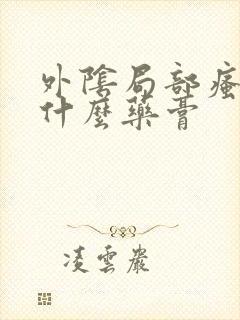 外陰局部瘙
什麼藥膏
凌雲巖